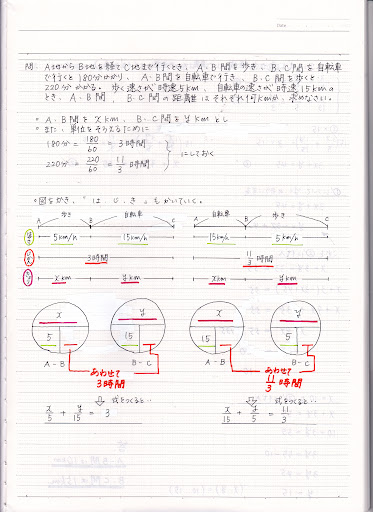 Date
問. A地からB地を経てC地まで行くとき、A・B間を歩き、B・C間を自転車
で行くと180分かかり、A・B間を自転車で行き、B・C間を歩くと
220分かかる。歩く速さが時速5km、自転車の速さが時速15kmの
とき、A・B間、B・C間の距離はそれぞれ何kmか、求めなさい。
○ A・B間をxkm、B・C間をykmとし
○ また、単位をそろえるために
180分 = 180/60 = 3時間
220分 = 220/60 = 11/3時間
} にしておく
A 歩き B 自転車 C A 自転車 B 歩き C
5km/h 15km/h 15km/h 5km/h
3時間 11/3時間
xkm ykm xkm ykm
x y x y
5 15 15 5
A-B B-C A-B B-C
あわせて 3時間 あわせて 11/3時間
式をつくると… 式をつくると…
x/5 + y/15 = 3 x/15 + y/5 = 11/3